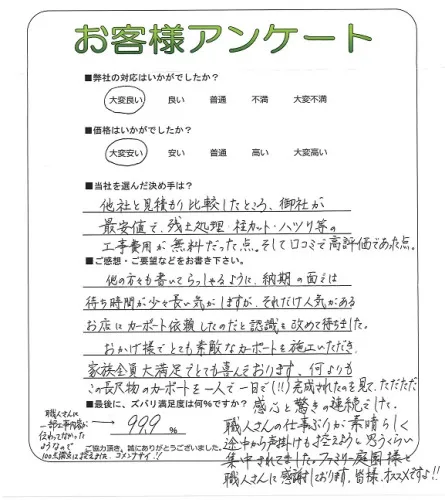 お客様アンケート
■弊社の対応はいかがでしたか?
大変良い 良い 普通 不満 大変不満
■価格はいかがでしたか?
大変安い 安い 普通 高い 大変高い
■当社を選んだ決め手は?
他社と見積もり比較したところ、御社が
最安値で、残土処理・柱カット・ハツリ等の
工事費用が無料だった点。そして口コミで高評価であった点。
■ご感想・ご要望などをお書き下さい。
他の方々も書いてらっしゃるように、納期の面では
待ち時間が少々長い気がしますが、それだけ人気がある
お店にカーポート依頼したのだと認識を改めて待ちました。
おかげ様でとても素敵なカーポートを施工いただき
家族全員大満足でとても喜んでおります。何よりも
この長尺物のカーポートを一人で一日で(!!)完成されたのを見て、ただただ
感心と驚きの連続でした。
■最後に、ズバリ満足度は何%ですか?
99.9 %
職人さんに
一部工事内容が
伝わってなかった
ようなので
100点満点は控えました。ゴメンナサイ!!
ご協力頂き、誠にありがとうございました。
職人さんの仕事ぶりが素晴らしく
途中から声掛けも控えようと思うくらい
集中されてました。ファミリー庭園様と
職人さんに感謝しております。皆様、オススメですよ!!